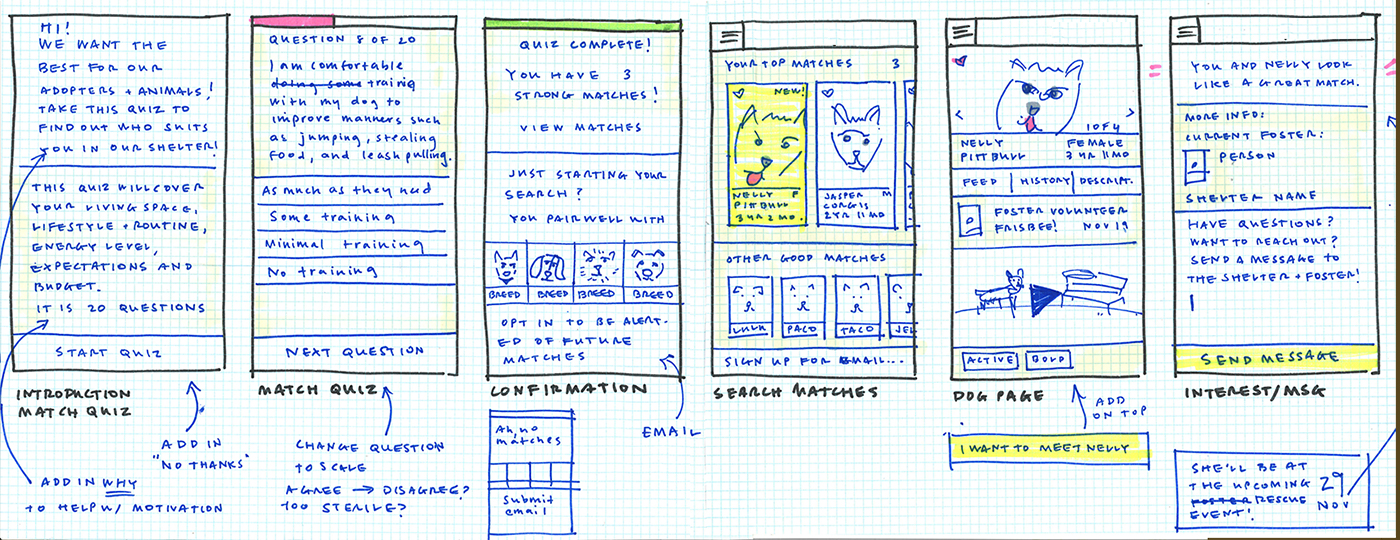 HI!
WE WANT THE
BEST FOR OUR
ADOPTERS + ANIMALS!
TAKE THIS QUIZ TO
FIND OUT WHO SUITS
YOU IN OUR SHELTER!
THIS QUIZ WILL COVER
YOUR LIVING SPACE,
LIFESTYLE + ROUTINE,
ENERGY LEVEL,
EXPECTATIONS AND
BUDGET.
IT IS 20 QUESTIONS
START QUIZ
INTRODUCTION
MATCH QUIZ
ADD IN
"NO THANKS"
ADD IN WHY
TO HELP W/ MOTIVATION
QUESTION 8 OF 20
I am comfortable
doing some training
with my dog to
improve manners such
as jumping, stealing
food, and leash pulling.
As much as they need
Some training
Minimal training
No training
NEXT QUESTION
MATCH QUIZ
CHANGE QUESTION
TO SCALE
AGREE → DISAGREE?
TOO STERILE?
QUIZ COMPLETE!
YOU HAVE 3
STRONG MATCHES!
VIEW MATCHES
JUST STARTING YOUR
SEARCH?
YOU PAIR WELL WITH
BREED BREED BREED BREED
OPT IN TO BE ALERT-
ED OF FUTURE
MATCHES
CONFIRMATION
EMAIL
Ah, no
matches
Submit
email
YOUR TOP MATCHES 3
NEW!
NELLY F
PITTBULL
3 YR 2 MO.
JASPER M
CORGIS
2 YR 11 MO
OTHER GOOD MATCHES
PACO TACO JEL
SIGN UP FOR EMAIL...
SEARCH MATCHES
< >
1 OF 4
NELLY FEMALE
PITTBULL 3 YR 11 MO
FEED HISTORY DESCRIPT.
FOSTER VOLUNTEER
FRISBEE! NOV 19
ACTIVE BOLD
DOG PAGE
ADD
ON TOP
I WANT TO MEET NELLY
YOU AND NELLY LOOK
LIKE A GREAT MATCH.
MORE INFO:
CURRENT FOSTER:
PERSON
SHELTER NAME
HAVE QUESTIONS?
WANT TO REACH OUT?
SEND A MESSAGE TO
THE SHELTER + FOSTER!
SEND MESSAGE
INTEREST/MSG
SHE'LL BE AT
THE UPCOMING
FOSTER RESCUE
EVENT!
29
NOV